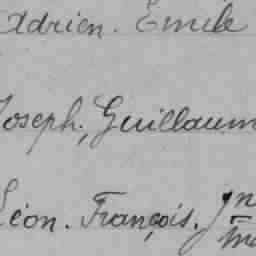 Adrien. Emile
Joseph, Guillaum
Léon. François.